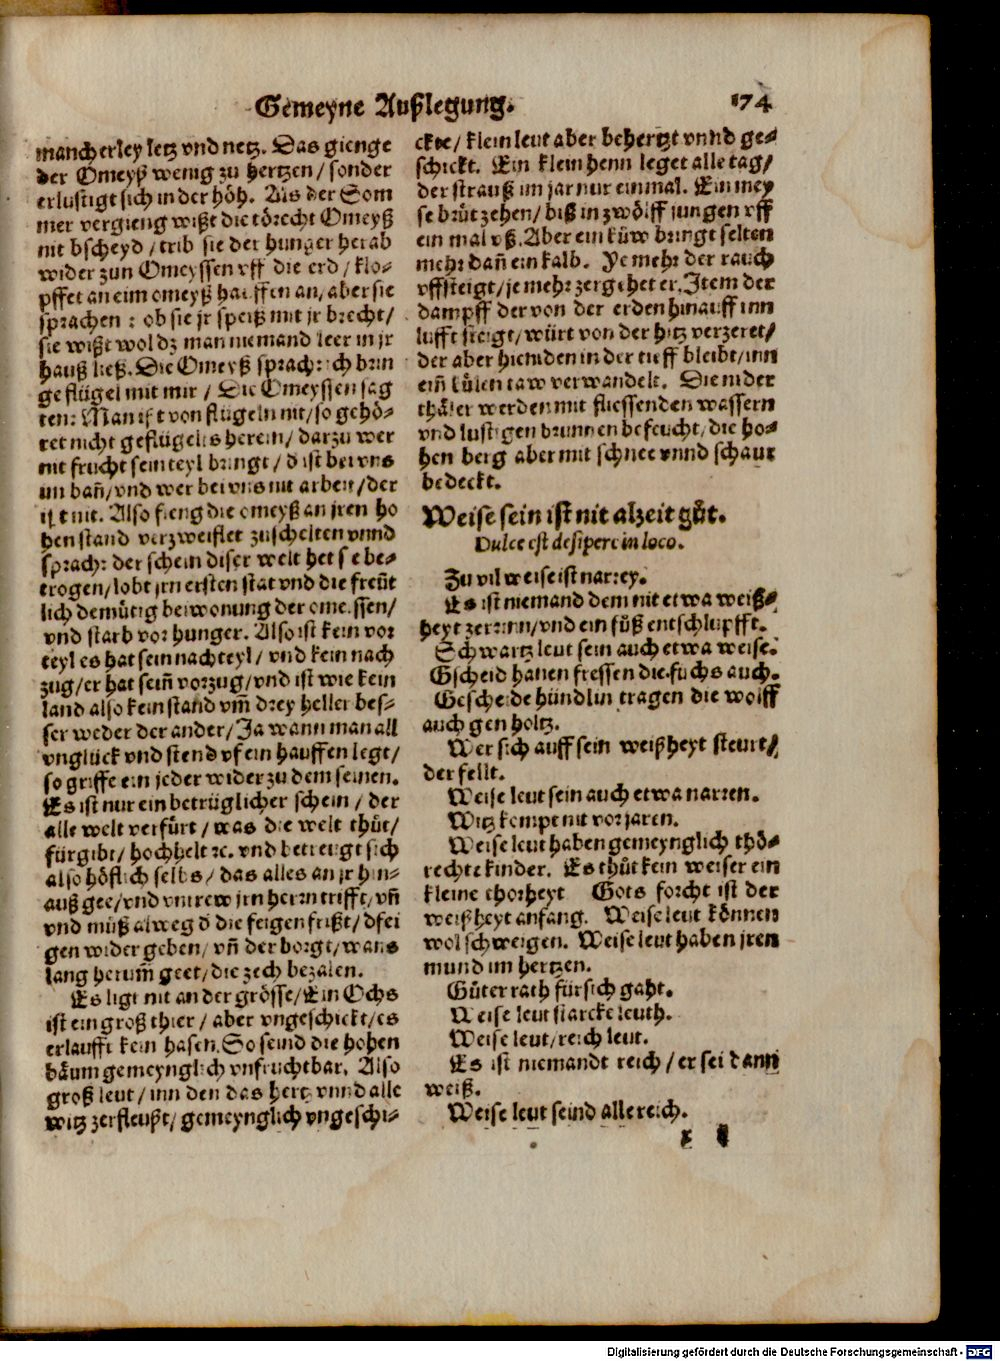 Gemeyne Außlegung. 174
mancherley letz vnd netz. Das gienge
der Omeyß wenig zu hertzen / sonder
erlustigt sich in der höh. Als der Som
mer vergieng wißt die törecht Omeyß
nit bscheyd / trib sie der hunger herab
wider zun Omeyssen vff die erd / klo-
pffet an eim omeyß hauffen an, aber sie
sprachen : ob sie jr speiß mit jr brecht /
sie wißt wol dz man niemand leer in jr
hauß ließ. Die Omeyß sprach: ich brin
ge flügel mit mir / Die Omeyssen sag
ten: Man ißt von flügeln nit / so gehö-
ret nicht geflügelts herein / darzu wer
nit frucht sein teyl bringt / d ist bei vns
im bañ / vnd wer bei vns nit arbeit / der
ißt nit. Also fieng die omeyß an jren ho
hen stand verzweiflet zuschelten vnnd
sprach: der schein diser welt het sie be-
trogen / lobt jrn ersten stat vnd die freüt
lich demütig beiwonung der omeissen /
vnd starb vor hunger. Also ist kein vor
teyl es hat sein nachteyl / vnd kein nach
zug / er hat seiñ vorzug / vnd ist wie kein
land also kein stand vm̃ drey heller bes-
ser weder der ander / Ja wann man all
vnglück vnd stend vf ein hauffen legt /
so griffe ein jeder wider zu dem seinen.
Es ist nur ein betrüglicher schein / der
alle welt verfürt / was die welt thůt /
fürgibt / hochhelt ꝛc. vnd betreugt sich
also höflich selbs / das alles an jr hin-
auß gee / vnd vntrew jrn herrn trifft / vñ
vnd můß alweg d die feigen frißt / d fei
gen wider geben / vñ der borgt / wans
lang herum̃ geet / die zech bezalen.
Es ligt nit an der grösse / Ein Ochs
ist ein groß thier / aber vngeschickt / es
erlaufft kein hasen. So seind die hohen
bäum gemeynglich vnfruchtbar. Also
groß leut / inn den das hertz vnnd alle
witz zerfleußt / gemeynglich vngeschi-
ckte / klein leut aber behertzt vnnd ge-
schickt. Ein klein henn leget alle tag /
der strauß im jar nur einmal. Ein mey
se brüt zehen / biß in zwölff jungen vff
ein mal vß. Aber ein kůw bringt selten
mehr dañ ein kalb. Ye mehr der rauch
vffsteigt / je mehr zergehet er. Item der
dampff der von der erden hinauff inn
lufft steigt / würt von der hitz verzeret /
der aber hieniden in der tieff bleibt / inn
eiñ külen taw verwandelt. Die nider
thäler werden mit fliessenden wassern
vnd lustigen brunnen befeucht / die ho-
hen berg aber mit schnee vnnd schaur
bedeckt.
Weise sein ist nit alzeit gůt.
Dulce est desipere in loco.
Zu vil weise ist narrey.
Es ist niemand dem nit etwa weiß-
heyt zerrinn / vnd ein fůß entschlupfft.
Schwartz leut sein auch etwa weise.
Gscheid hanen fressen die fuchs auch.
Gescheide hündlin tragen die wölff
auch gen holtz.
Wer sich auff sein weißheyt steurt /
der fellt.
Weise leut sein auch etwa narren.
Witz kompt nit vor jaren.
Weise leut haben gemeynglich thö-
rechte kinder. Es thůt kein weiser ein
kleine thorheyt Gots forcht ist der
weißheyt anfang. Weise leut können
wol schweigen. Weise leut haben jren
mund im hertzen.
Gůter rath fürsich gaht.
Weise leut starcke leuth.
Weise leut / reich leut.
Es ist niemandt reich / er sei dann
weiß.
Weise leut seind alle reich.
Digitalisierung gefördert durch die Deutsche Forschungsgemeinschaft - DFG